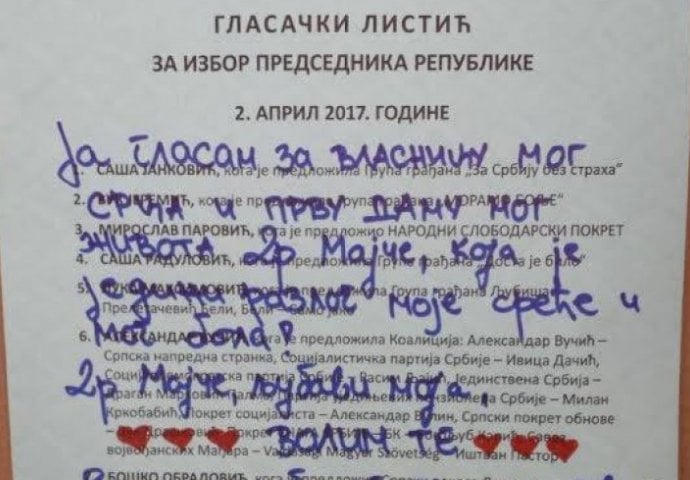 ГЛАСАЧКИ ЛИСТИЋ
ЗА ИЗБОР ПРЕДСЕДНИКА РЕПУБЛИКЕ
2. АПРИЛ 2017. ГОДИНЕ
Ја гласам за власницу мог
1. САША ЈАНКОВИЋ, кога је предложила Група грађана „За Србију без страха“
2. ВУК ЈЕРЕМИЋ, кога је предложила Група грађана „МОРАМО БОЉЕ“
срца и прву даму мог
3. МИРОСЛАВ ПАРОВИЋ, кога је предложио НАРОДНИ СЛОБОДАРСКИ ПОКРЕТ
живота др Мајче, која је
4. САША РАДУЛОВИЋ, кога је предложила Група грађана „Доста је било“
једини разлог моје среће и
5. ЛУКА МАКСИМОВИЋ, кога је предложила Група грађана Љубиша
Прелетачевић Бели, Бели – Само јако
мог бола?
6. АЛЕКСАНДАР кога је предложила Коалиција: Александар Вучић –
Српска напредна странка, Социјалистичка партија Србије – Ивица Дачић,
Србије – Расим Љајић, Јединствена Србија –
др Мајче, љубави моја,
Драган Марковић Палма, Партија уједињених пензионера Србије – Милан
Кркобабић, Покрет социјалиста – Александар Вулин, Српски покрет обнове
ВОЛИМ ТЕ
– Покрет Карић, Савез
војвођанских Мађара – Vajdasági Magyar Szövetség – Иштван Пастор
БОШКО ОБРАДОВИЋ, кога је